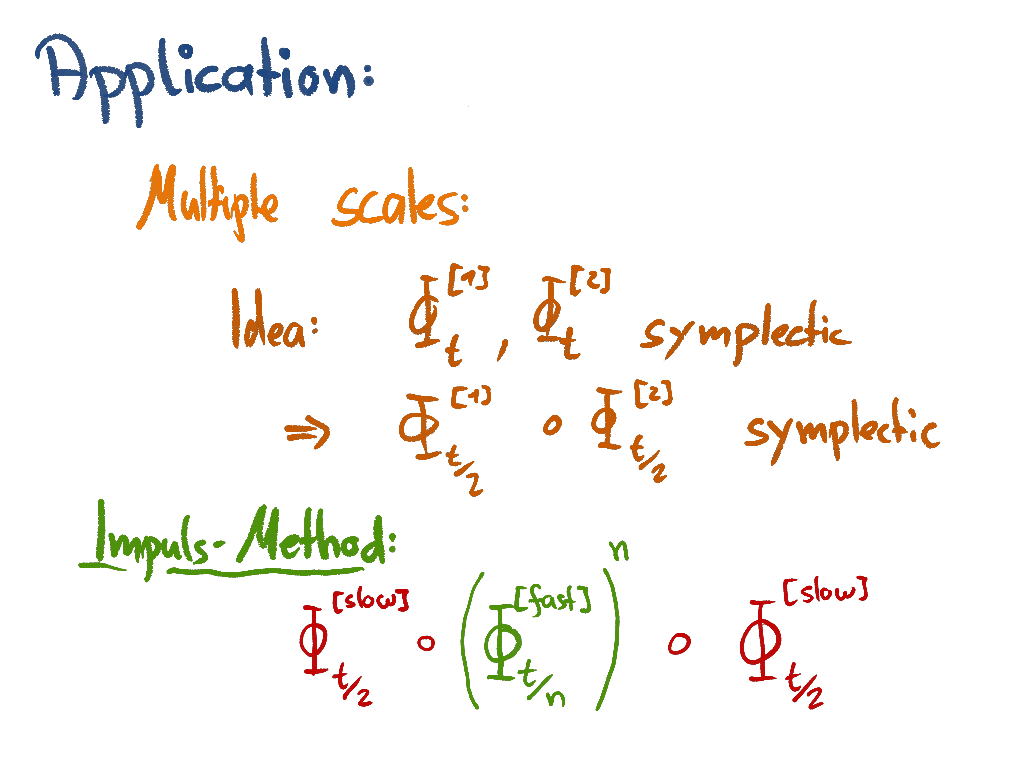 Application:
Multiple scales:
Idea: Φ_t^[1], Φ_t^[2] symplectic
⇒ Φ_{t/2}^[1] ∘ Φ_{t/2}^[2] symplectic
Impuls-Method:
Φ_{t/2}^[slow] ∘ (Φ_{t/n}^[fast])^n ∘ Φ_{t/2}^[slow]